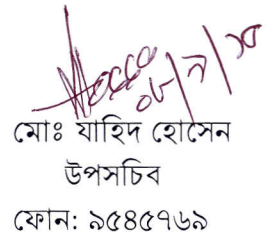 মোঃ যাহিদ হোসেন
উপসচিব
ফোন: ৯৫৪৫৭৬৯